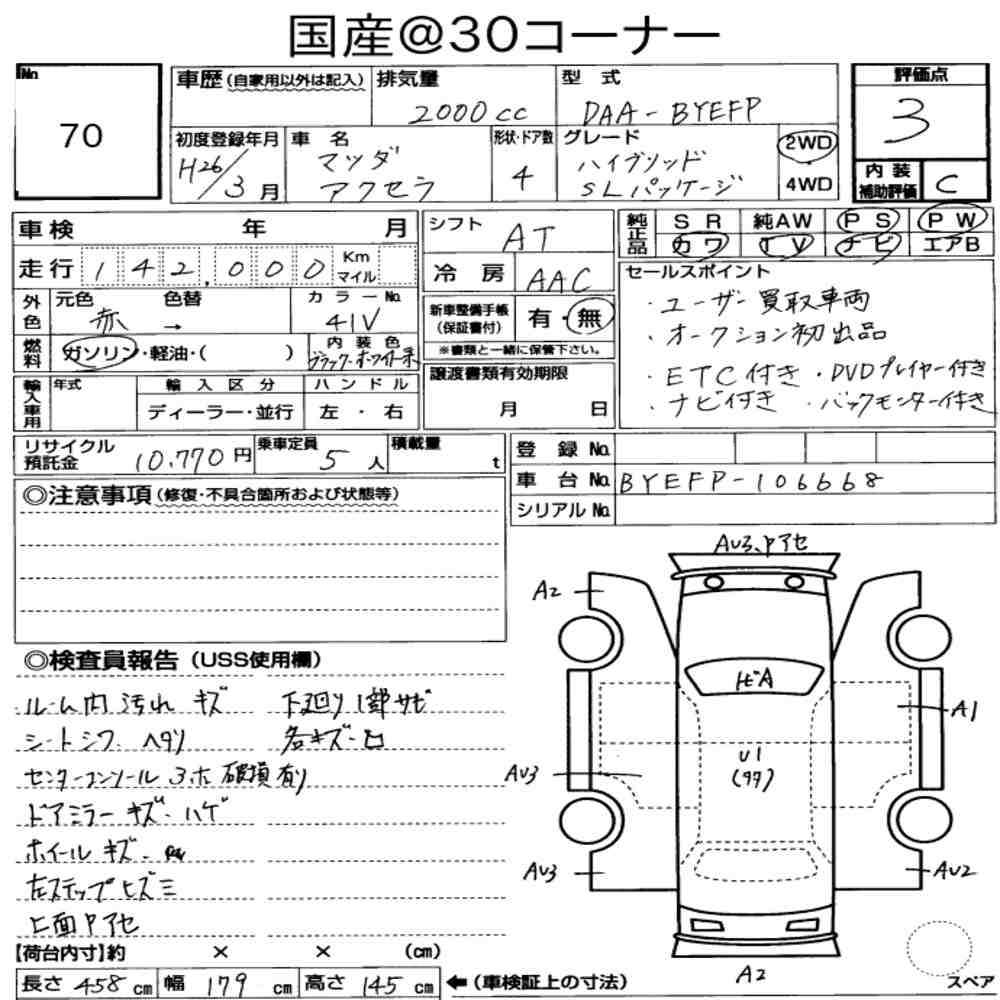 国産@30コーナー
No.
70
車歴(自家用以外は記入)
排気量
2000cc
型 式
DAA-BYEFP
評価点
3
初度登録年月
H26/3月
車 名
マツダ
アクセラ
形状・ドア数
4
グレード
ハイブリッド
SLパッケージ
2WD
4WD
内装
補助評価
C
車検 年 月
走行 142,000 Km
マイル
シフト
AT
冷 房
AAC
純正品
SR 純AW PS PW
カワ TV ナビ エアB
外色
元色 色替
赤 →
カラーNo.
41V
燃料
ガソリン・軽油・( )
内装色
新車整備手帳
(保証書付)
有・無
※書類と一緒に保管下さい。
セールスポイント
・ユーザー買取車両
・オークション初出品
・ETC付き ・DVDプレイヤー付き
・ナビ付き ・バックモニター付き
輸入車用
年式
輸入区分
ハンドル
ディーラー・並行
左・右
譲渡書類有効期限
月 日
リサイクル
預託金
10,770円
乗車定員
5人
積載量
t
登 録 No.
車 台 No. BYEFP-106668
シリアル No.
◎注意事項(修復・不具合箇所および状態等)
◎検査員報告(USS使用欄)
ルーム内汚れ キズ 下廻り1部サビ
シートシワ. ヘタリ 各キズ・凹
センターコンソール 3ホ 破損有り
ドアミラー キズ・ハゲ
ホイール キズ.
左ステップヒズミ
上面Pアセ
AU3、Pアセ
A2
ヒビA
A1
U1
AU3
AU3
AU2
A2
スペア
【荷台内寸】約 × × (cm)
長さ 458 cm 幅 179 cm 高さ 145 cm ←(車検証上の寸法)